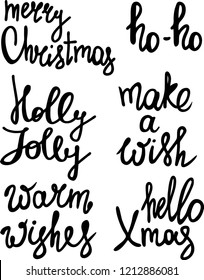 merry
Christmas
ho-ho
Holly
Jolly
make
a
wish
warm
wishes
hello
Xmas
shutterstock.com · 1212886081